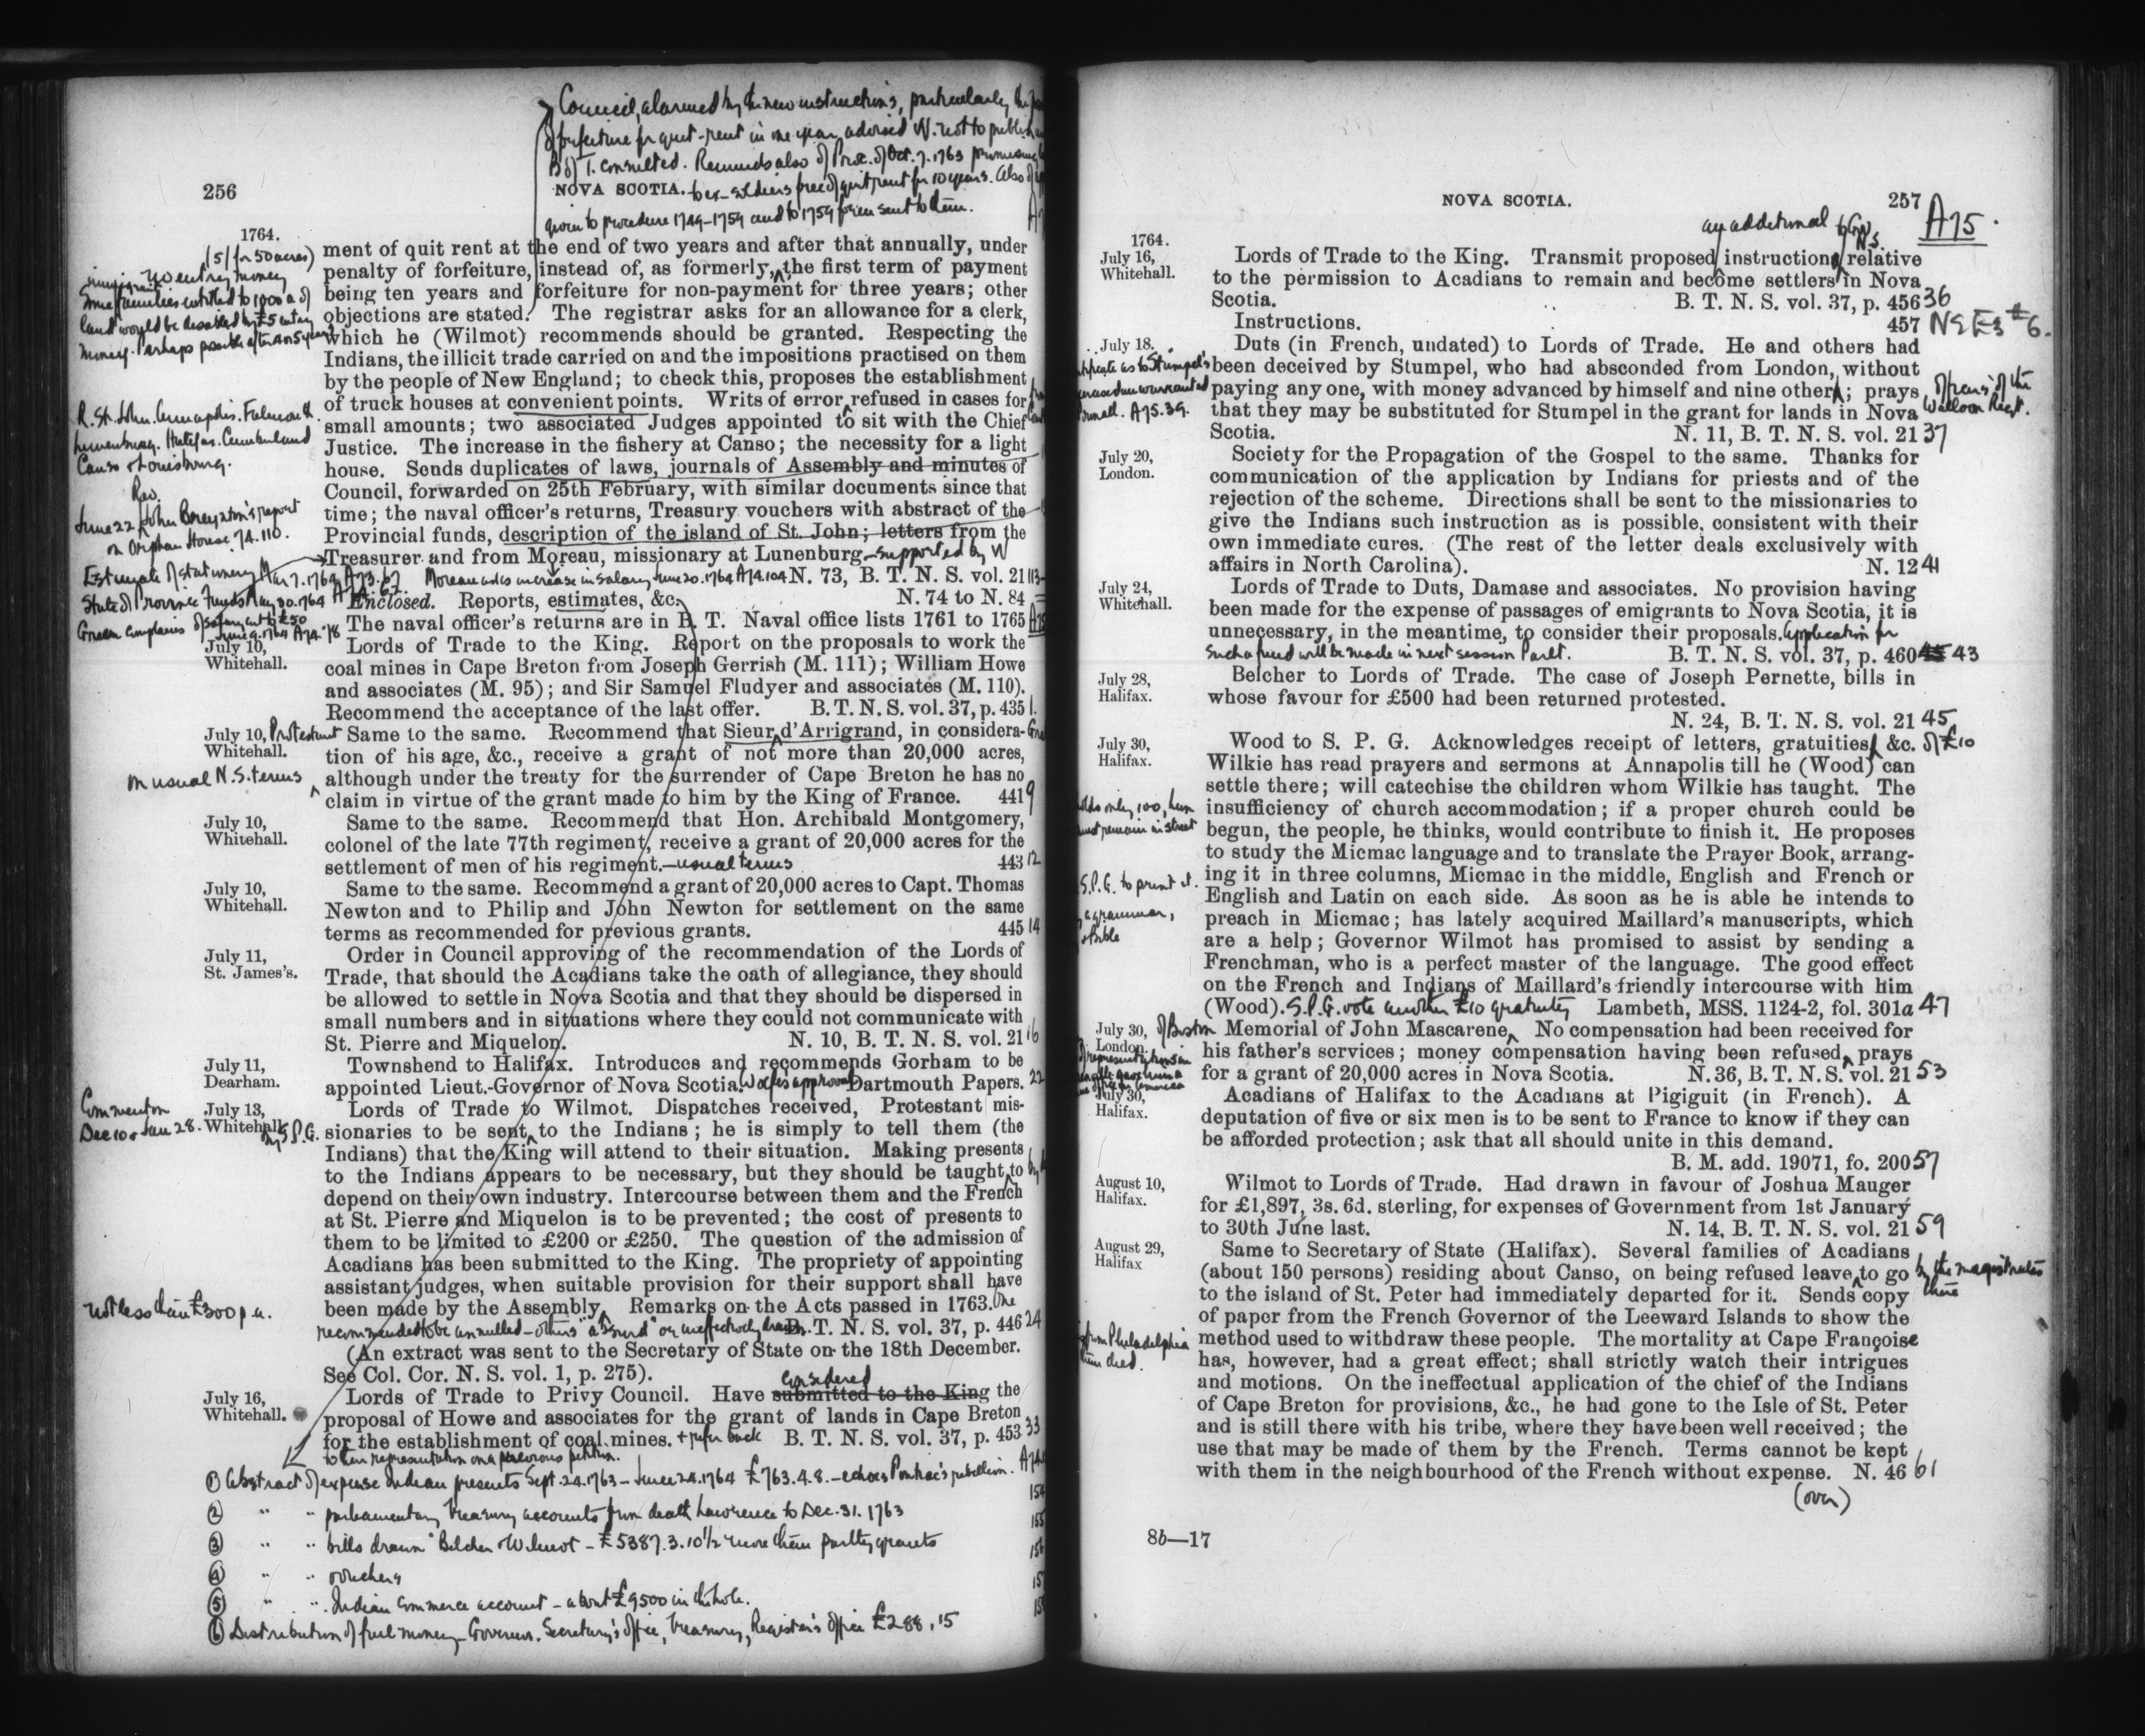 Council, alarmed by the new instructions, particularly the
of forfeiture for quit-rent in one year, advised W. not to publish
B of T. consulted. Reminds also of Proc. of Oct. 7. 1763 promising
256
NOVA SCOTIA.
to ex-soldiers free of quit rent for 10 years. Also of
given to procedure 1749-1759 and to 1759 form sent to them.
1764.
(5/ for 50 acres)
no entry money
Some families entitled to 1000 a of
land would be disabled by £5 entry
money. Perhaps possible after 4 or 5 years
ment of quit rent at the end of two years and after that annually, under
penalty of forfeiture, instead of, as formerly, the first term of payment
being ten years and forfeiture for non-payment for three years; other
objections are stated. The registrar asks for an allowance for a clerk,
which he (Wilmot) recommends should be granted. Respecting the
Indians, the illicit trade carried on and the impositions practised on them
by the people of New England; to check this, proposes the establishment
of truck houses at convenient points. Writs of error refused in cases for
R. St. John. Annapolis. Falmouth
Lunenburg. Halifax. Cumberland
Canso & Louisbourg.
small amounts; two associated Judges appointed to sit with the Chief
Justice. The increase in the fishery at Canso; the necessity for a light
house. Sends duplicates of laws, journals of Assembly and minutes of
Council, forwarded on 25th February, with similar documents since that
time; the naval officer's returns, Treasury vouchers with abstract of the
Provincial funds, description of the island of St. John; letters from the
Treasurer and from Moreau, missionary at Lunenburg. supported by W
Rev.
June 22 John Breynton's report
on Orphan House 74. 110.
Estimate of stationery Mar 7. 1764 A73. 67
State of Province Funds May 30. 1764
Green complains of salary cut to £50
June 9. 1764 A74. 78
Moreau asks increase in salary June 20. 1764 A74. 104 N. 73, B. T. N. S. vol. 21 113
Enclosed. Reports, estimates, &c. N. 74 to N. 84
The naval officer's returns are in B. T. Naval office lists 1761 to 1765
July 10,
Whitehall.
Lords of Trade to the King. Report on the proposals to work the
coal mines in Cape Breton from Joseph Gerrish (M. 111); William Howe
and associates (M. 95); and Sir Samuel Fludyer and associates (M. 110).
Recommend the acceptance of the last offer. B. T. N. S. vol. 37, p. 435 1.
July 10,
Whitehall.
Protestant
Same to the same. Recommend that Sieur d'Arrigrand, in considera-
tion of his age, &c., receive a grant of not more than 20,000 acres,
on usual N.S. terms
although under the treaty for the surrender of Cape Breton he has no
claim in virtue of the grant made to him by the King of France. 441 9
July 10,
Whitehall.
Same to the same. Recommend that Hon. Archibald Montgomery,
colonel of the late 77th regiment, receive a grant of 20,000 acres for the
settlement of men of his regiment. —usual terms 443 12
July 10,
Whitehall.
Same to the same. Recommend a grant of 20,000 acres to Capt. Thomas
Newton and to Philip and John Newton for settlement on the same
terms as recommended for previous grants. 445 14
July 11,
St. James's.
Order in Council approving of the recommendation of the Lords of
Trade, that should the Acadians take the oath of allegiance, they should
be allowed to settle in Nova Scotia and that they should be dispersed in
small numbers and in situations where they could not communicate with
St. Pierre and Miquelon. N. 10, B. T. N. S. vol. 21 16
July 11,
Dearham.
Townshend to Halifax. Introduces and recommends Gorham to be
appointed Lieut.-Governor of Nova Scotia. Wolfe's approval Dartmouth Papers. 22
Comment on
Dec 10 & Jan 28.
July 13,
Whitehall.
by S.P.G.
Lords of Trade to Wilmot. Dispatches received, Protestant mis-
sionaries to be sent to the Indians; he is simply to tell them (the
Indians) that the King will attend to their situation. Making presents
to the Indians appears to be necessary, but they should be taught to
depend on their own industry. Intercourse between them and the French
at St. Pierre and Miquelon is to be prevented; the cost of presents to
them to be limited to £200 or £250. The question of the admission of
Acadians has been submitted to the King. The propriety of appointing
assistant judges, when suitable provision for their support shall have
not less than £300 p.a.
been made by the Assembly. Remarks on the Acts passed in 1763. One
recommended to be annulled – others "absurd" or ineffectively drawn B. T. N. S. vol. 37, p. 446 24
(An extract was sent to the Secretary of State on the 18th December.
See Col. Cor. N. S. vol. 1, p. 275).
July 16,
Whitehall.
considered
Lords of Trade to Privy Council. Have submitted to the King the
proposal of Howe and associates for the grant of lands in Cape Breton
for the establishment of coal mines. + refer back B. T. N. S. vol. 37, p. 453 33
to their representation on a previous petition.
① Abstract of expense Indian presents Sept. 24. 1763 – June 24. 1764 £763. 4. 8. – echoes Pontiac's rebellion.
② " " parliamentary treasury accounts from death Lawrence to Dec. 31. 1763
③ " " bills drawn Belcher & Wilmot – £5387. 3. 10½ more than parlty grants
④ " " vouchers
⑤ " " Indian Commerce account – about £9500 in the hole.
⑥ Distribution of fuel money – Governor. Secretary's office, Treasury, Register's office £288. 15
NOVA SCOTIA.
257
A75.
an additional to Gov N.S.
1764.
July 16,
Whitehall.
Lords of Trade to the King. Transmit proposed instructions relative
to the permission to Acadians to remain and become settlers in Nova
Scotia. B. T. N. S. vol. 37, p. 456 36
Instructions. 457 NS E3 #6.
July 18.
Duts (in French, undated) to Lords of Trade. He and others had
been deceived by Stumpel, who had absconded from London, without
paying any one, with money advanced by himself and nine others; prays
that they may be substituted for Stumpel in the grant for lands in Nova
Scotia. N. 11, B. T. N. S. vol. 21 37
A75. 39.
officers of the
Walloon Regt.
July 20,
London.
Society for the Propagation of the Gospel to the same. Thanks for
communication of the application by Indians for priests and of the
rejection of the scheme. Directions shall be sent to the missionaries to
give the Indians such instruction as is possible, consistent with their
own immediate cures. (The rest of the letter deals exclusively with
affairs in North Carolina). N. 12 41
July 24,
Whitehall.
Lords of Trade to Duts, Damase and associates. No provision having
been made for the expense of passages of emigrants to Nova Scotia, it is
unnecessary, in the meantime, to consider their proposals. Application for
such a fund will be made in next session Parlt. B. T. N. S. vol. 37, p. 460 43
July 28,
Halifax.
Belcher to Lords of Trade. The case of Joseph Pernette, bills in
whose favour for £500 had been returned protested.
N. 24, B. T. N. S. vol. 21 45
July 30,
Halifax.
Wood to S. P. G. Acknowledges receipt of letters, gratuities, &c. of £10
Wilkie has read prayers and sermons at Annapolis till he (Wood) can
settle there; will catechise the children whom Wilkie has taught. The
holds only 100, hun
must remain in street
insufficiency of church accommodation; if a proper church could be
begun, the people, he thinks, would contribute to finish it. He proposes
to study the Micmac language and to translate the Prayer Book, arrang-
S.P.G. to print it.
a grammar,
& Bible
ing it in three columns, Micmac in the middle, English and French or
English and Latin on each side. As soon as he is able he intends to
preach in Micmac; has lately acquired Maillard's manuscripts, which
are a help; Governor Wilmot has promised to assist by sending a
Frenchman, who is a perfect master of the language. The good effect
on the French and Indians of Maillard's friendly intercourse with him
(Wood). S.P.G. vote another £10 gratuity Lambeth, MSS. 1124-2, fol. 301a 47
July 30,
London.
of Boston
Memorial of John Mascarene. No compensation had been received for
his father's services; money compensation having been refused, prays
for a grant of 20,000 acres in Nova Scotia. N. 36, B. T. N. S. vol. 21 53
July 30,
Halifax.
Acadians of Halifax to the Acadians at Pigiguit (in French). A
deputation of five or six men is to be sent to France to know if they can
be afforded protection; ask that all should unite in this demand.
B. M. add. 19071, fo. 200 57
August 10,
Halifax.
Wilmot to Lords of Trade. Had drawn in favour of Joshua Mauger
for £1,897, 3s. 6d. sterling, for expenses of Government from 1st January
to 30th June last. N. 14, B. T. N. S. vol. 21 59
August 29,
Halifax
Same to Secretary of State (Halifax). Several families of Acadians
(about 150 persons) residing about Canso, on being refused leave to go by the magistrates there
to the island of St. Peter had immediately departed for it. Sends copy
of paper from the French Governor of the Leeward Islands to show the
from Philadelphia
them died.
method used to withdraw these people. The mortality at Cape Françoise
has, however, had a great effect; shall strictly watch their intrigues
and motions. On the ineffectual application of the chief of the Indians
of Cape Breton for provisions, &c., he had gone to the Isle of St. Peter
and is still there with his tribe, where they have been well received; the
use that may be made of them by the French. Terms cannot be kept
with them in the neighbourhood of the French without expense. N. 46 61
(over)
8b—17